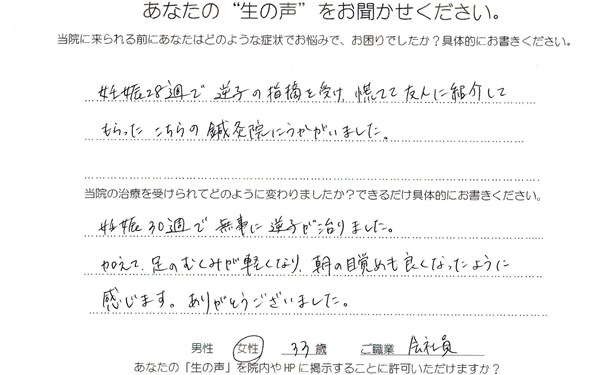 あなたの“生の声”をお聞かせください。
当院に来られる前にあなたはどのような症状でお悩みで、お困りでしたか？具体的にお書きください。
妊娠28週で 逆子の指摘を受け、慌てて友人に紹介して
もらった こちらの鍼灸院にうかがいました。
当院の治療を受けられてどのように変わりましたか？できるだけ具体的にお書きください。
妊娠30週で 無事に逆子が治りました。
加えて、足のむくみが軽くなり、朝の目覚めも良くなったように
感じます。ありがとうございました。
男性 女性 33歳 ご職業 会社員
あなたの「生の声」を院内やHPに掲示することに許可いただけますか？